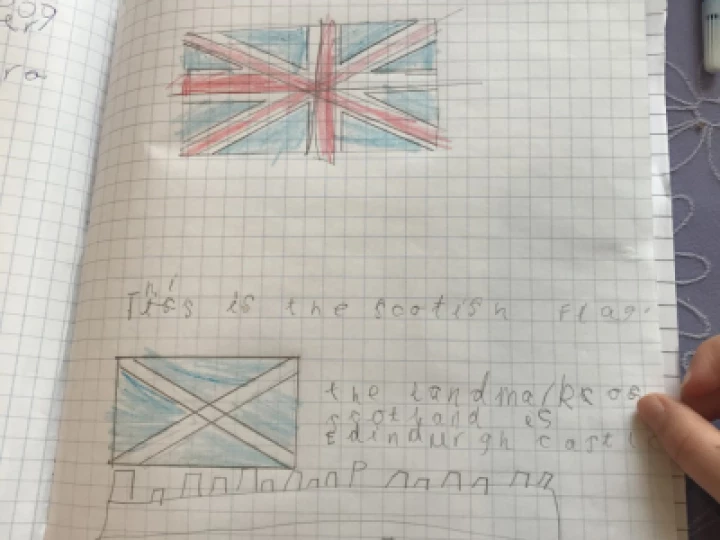 og
er
ra
This is the scotish flag.
the landmarks of
scotland is
Edinburgh castle